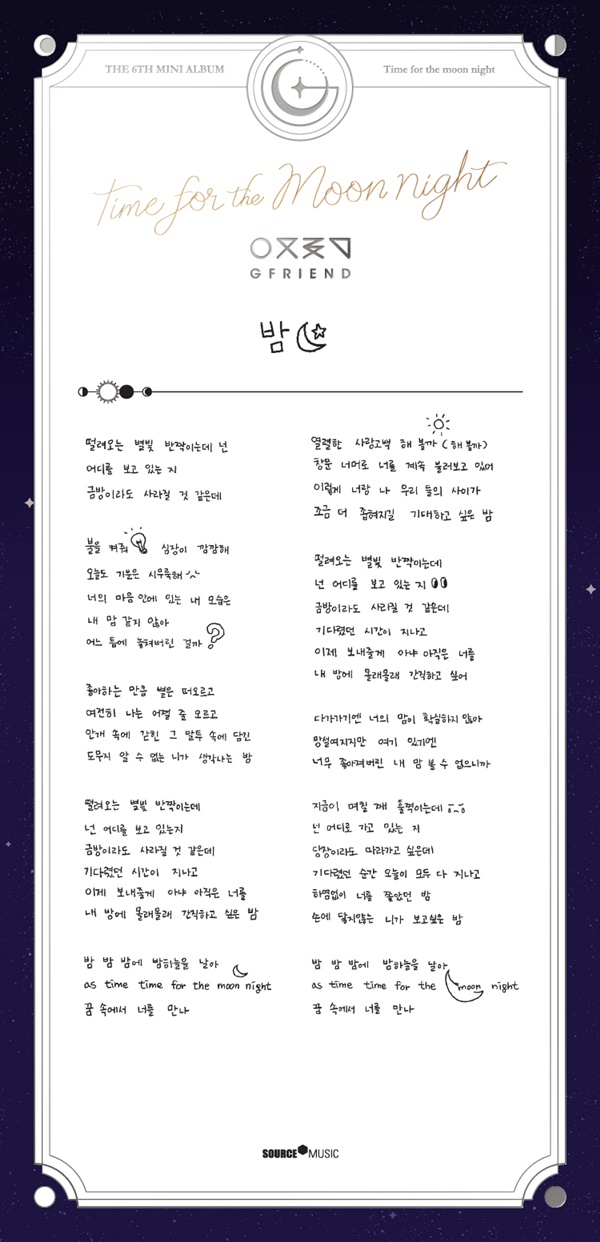 THE 6TH MINI ALBUM
Time for the moon night
Time for the Moon night
여자친구
GFRIEND
밤
떨려오는 별빛 반짝이는데 넌
어디를 보고 있는 지
금방이라도 사라질 것 같은데
불을 켜줘 심장이 깜깜해
오늘도 기분은 시무룩해
너의 마음 안에 있는 내 모습은
내 맘 같지 않아
어느 틈에 놓쳐버린 걸까?
좋아하는 만큼 별은 떠오르고
여전히 나는 어쩔 줄 모르고
안개 속에 갇힌 그 말투 속에 담긴
도무지 알 수 없는 니가 생각나는 밤
떨려오는 별빛 반짝이는데
넌 어디를 보고 있는지
금방이라도 사라질 것 같은데
기다렸던 시간이 지나고
이제 보내줄게 아냐 아직은 너를
내 방에 몰래몰래 간직하고 싶은 밤
밤 밤 밤에 밤하늘을 날아
as time time for the moon night
꿈 속에서 너를 만나
열렬한 사랑고백 해 볼까 (해 볼까)
창문 너머로 너를 계속 불러보고 있어
이렇게 너랑 나 우리 둘의 사이가
조금 더 좁혀지길 기대하고 싶은 밤
떨려오는 별빛 반짝이는데
넌 어디를 보고 있는 지
금방이라도 사라질 것 같은데
기다렸던 시간이 지나고
이제 보내줄게 아냐 아직은 너를
내 방에 몰래몰래 간직하고 싶어
다가가기엔 너의 맘이 확실하지 않아
망설여지지만 여기 있기엔
너무 좋아져버린 내 맘 볼 수 없으니까
지금이 며칠 째 훌쩍이는데
넌 어디로 가고 있는 지
당장이라도 따라가고 싶은데
기다렸던 순간 오늘이 모두 다 지나고
하염없이 너를 쫓았던 밤
손에 닿지않는 니가 보고싶은 밤
밤 밤 밤에 밤하늘을 날아
as time time for the moon night
꿈 속에서 너를 만나
SOURCE MUSIC